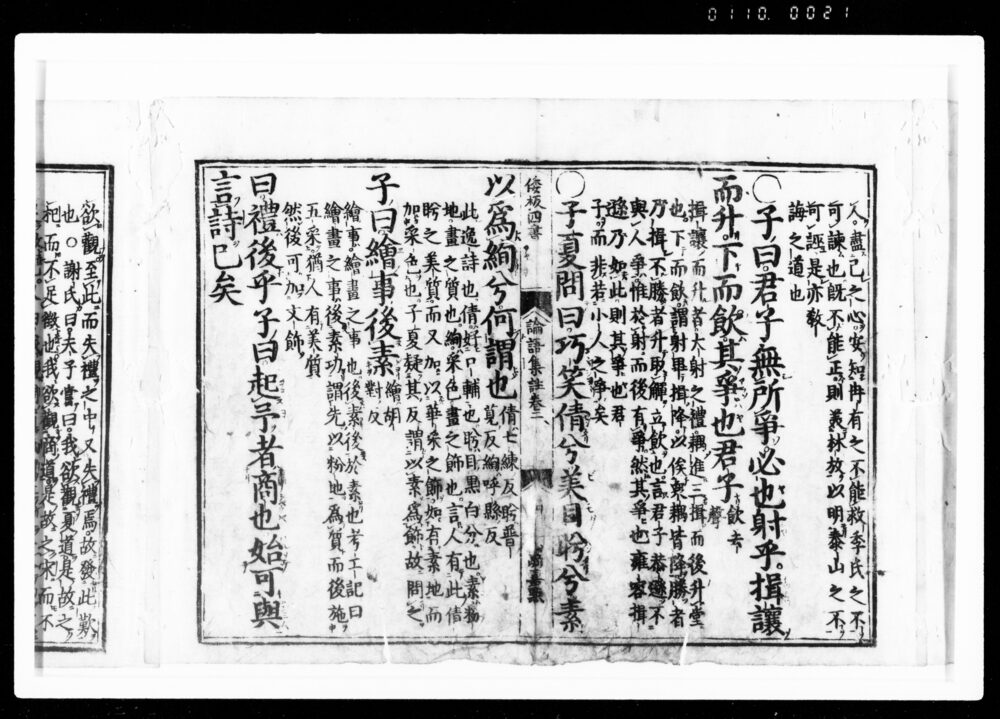 0110. 0021
人盡己之心安知冉有之不能救季氏之不
可諫也既不能正則美林放以明泰山之不
可誣是亦敎
誨之道也
○子曰君子無所爭必也射乎揖讓
而升下而飲其爭也君子飲去聲
揖讓而升者大射之禮耦進三揖而後升堂
也下而飲謂射畢揖降以俟衆耦皆降勝者
乃揖不勝者升取觶立飲也言君子恭遜不
與人爭惟於射而後有爭然其爭也雍容揖
遜乃如此則其爭也君
子而非若小人之爭矣
○子夏問曰巧笑倩兮美目盻兮素
倭板四書 論語集註卷二
以爲絢兮何謂也倩七練反盻普莧反絢呼縣反
此逸詩也倩好口輔也盻目黒白分也素粉
地畫之質也絢采色畫之飾也言人有此倩
盻之美質而又加以華采之飾如有素地而
加采色也子夏疑其反謂以素爲飾故問之
子曰繪事後素繪胡對反
繪事繪畫之事也後素後於素也考工記曰
繪畫之事後素功謂先以粉地爲質而後施
五采猶人有美質
然後可加文飾
曰禮後乎子曰起予者商也始可與
言詩已矣
欲觀至此而失禮之中又失禮焉故發此歎
也○謝氏曰夫子嘗曰我欲觀夏道是故之
杞而不足徵也我欲觀商道是故之宋而不